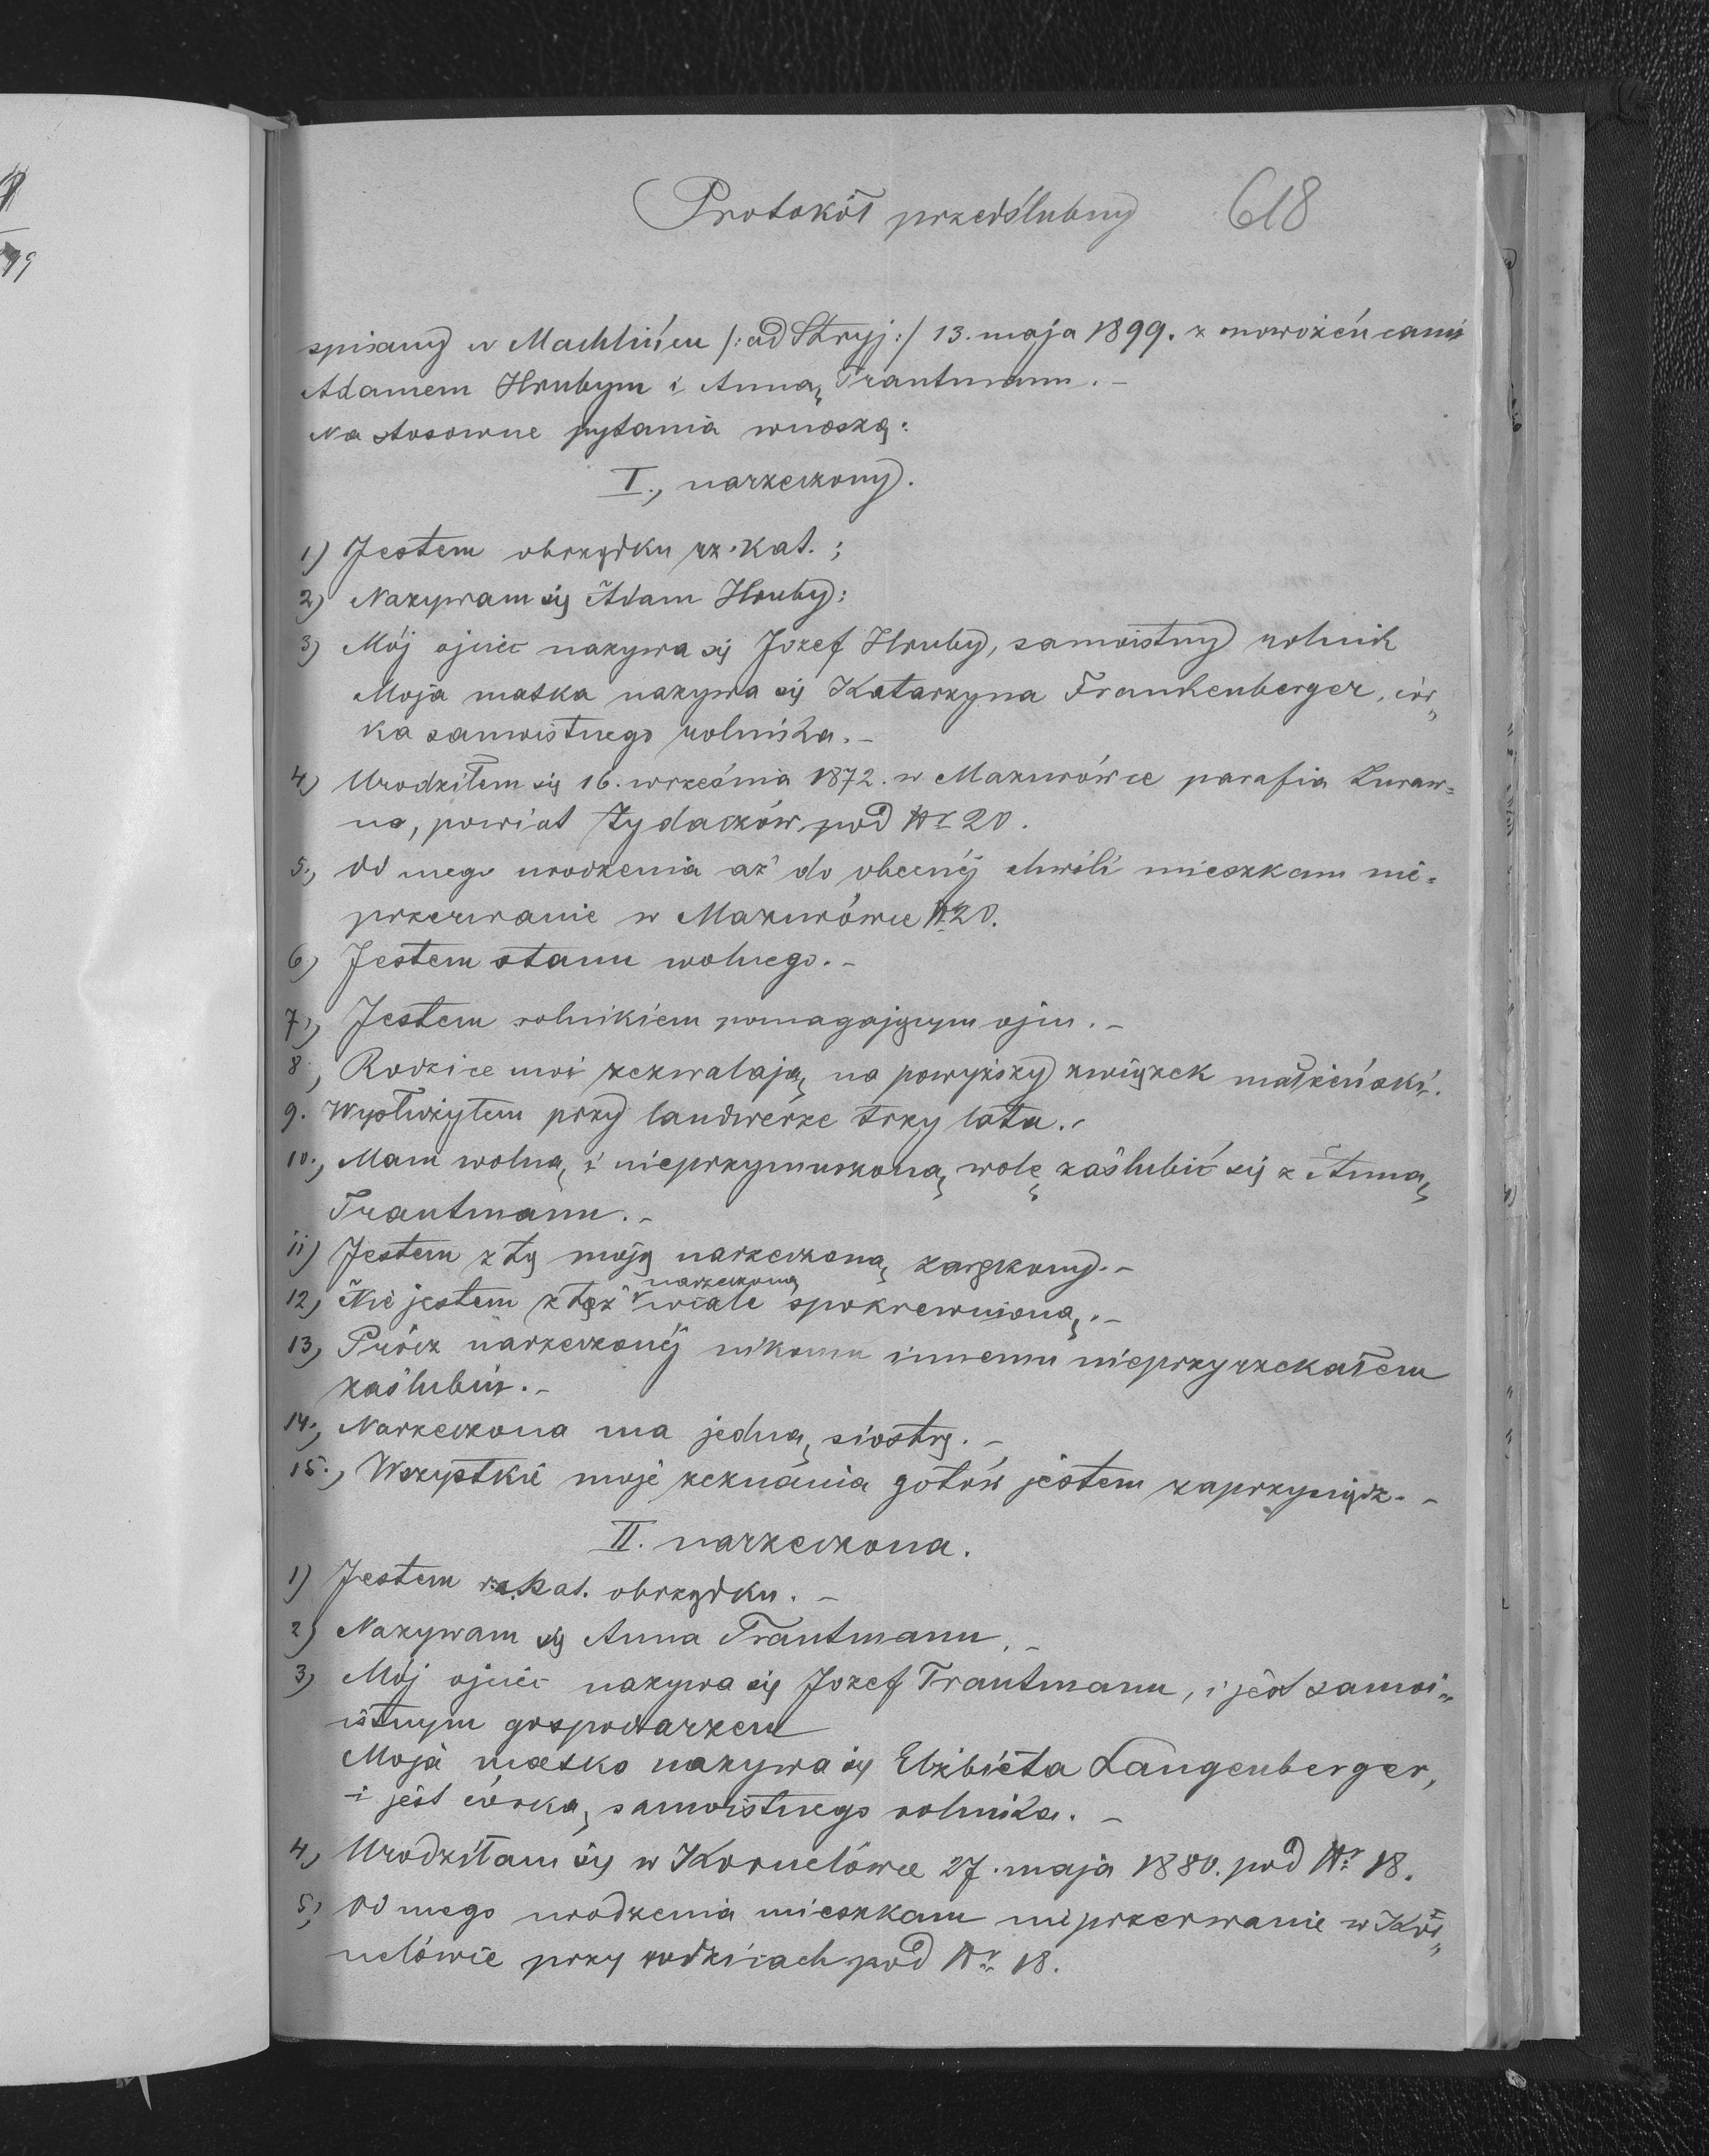 Protokół przedślubny 618
spisany w Machlińcu /: ad Stryj :/ 13. maja 1899. z nowożeńcami
Adamem Hrubym i Anną Trautmann. –
Na stosowne pytania wnoszą:
I., narzeczony.
1) Jestem obrządku rz. kat. ;
2) Nazywam się Adam Hruby:
3) Mój ojciec nazywa się Jozef Hruby, samoistny rolnik
Moja matka nazywa się Katarzyna Frankenberger, cór„
ka samoistnego rolnika. –
4) Urodziłem się 16. września 1872. w Mazurówce parafia Żuraw=
no, powiat Żydaczów, pod Nr 20.
5., Od mego urodzenia aż do obecnéj chwili mieszkam nie=
przerwanie w Mazurówce N 20.
6) Jestem stanu wolnego. –
7., Jestem rolnikiem pomagającym ojcu. –
8., Rodzice moi zezwalają na powyższy związek małżeński.
9. Wysłużyłem przy landwerze trzy lata. –
10., Mam wolną i nieprzymuszoną wolę zaślubić się z Anną
Trautmann. –
11) Jestem z tą moją narzeczoną zaręczony. –
12) Nie jestem z tąż narzeczoną wcale spokrewnioną. –
13) Prócz narzeczonéj nikomu innemu nieprzyrzekałem
zaślubin. –
14., Narzeczona ma jedną siostrę. –
15., Wszystkie moje zeznania gotów jestem zaprzysiądz. –
II. narzeczona.
1) Jestem rz. kat. obrządku. –
2) Nazywam się Anna Trautmann. –
3) Mój ojciec nazywa się Jozef Trautmann, i jest samoi„
istnym gospodarzem
Moja matka nazywa się Elżbieta Langenberger,
i jest córką samoistnego rolnika. –
4) Urodziłam się w Kornelówce 27. maja 1880. pod Nr 18.
5) Od mego urodzenia mieszkam nieprzerwanie w Kor„
nelówce przy rodzicach pod Nr 18.